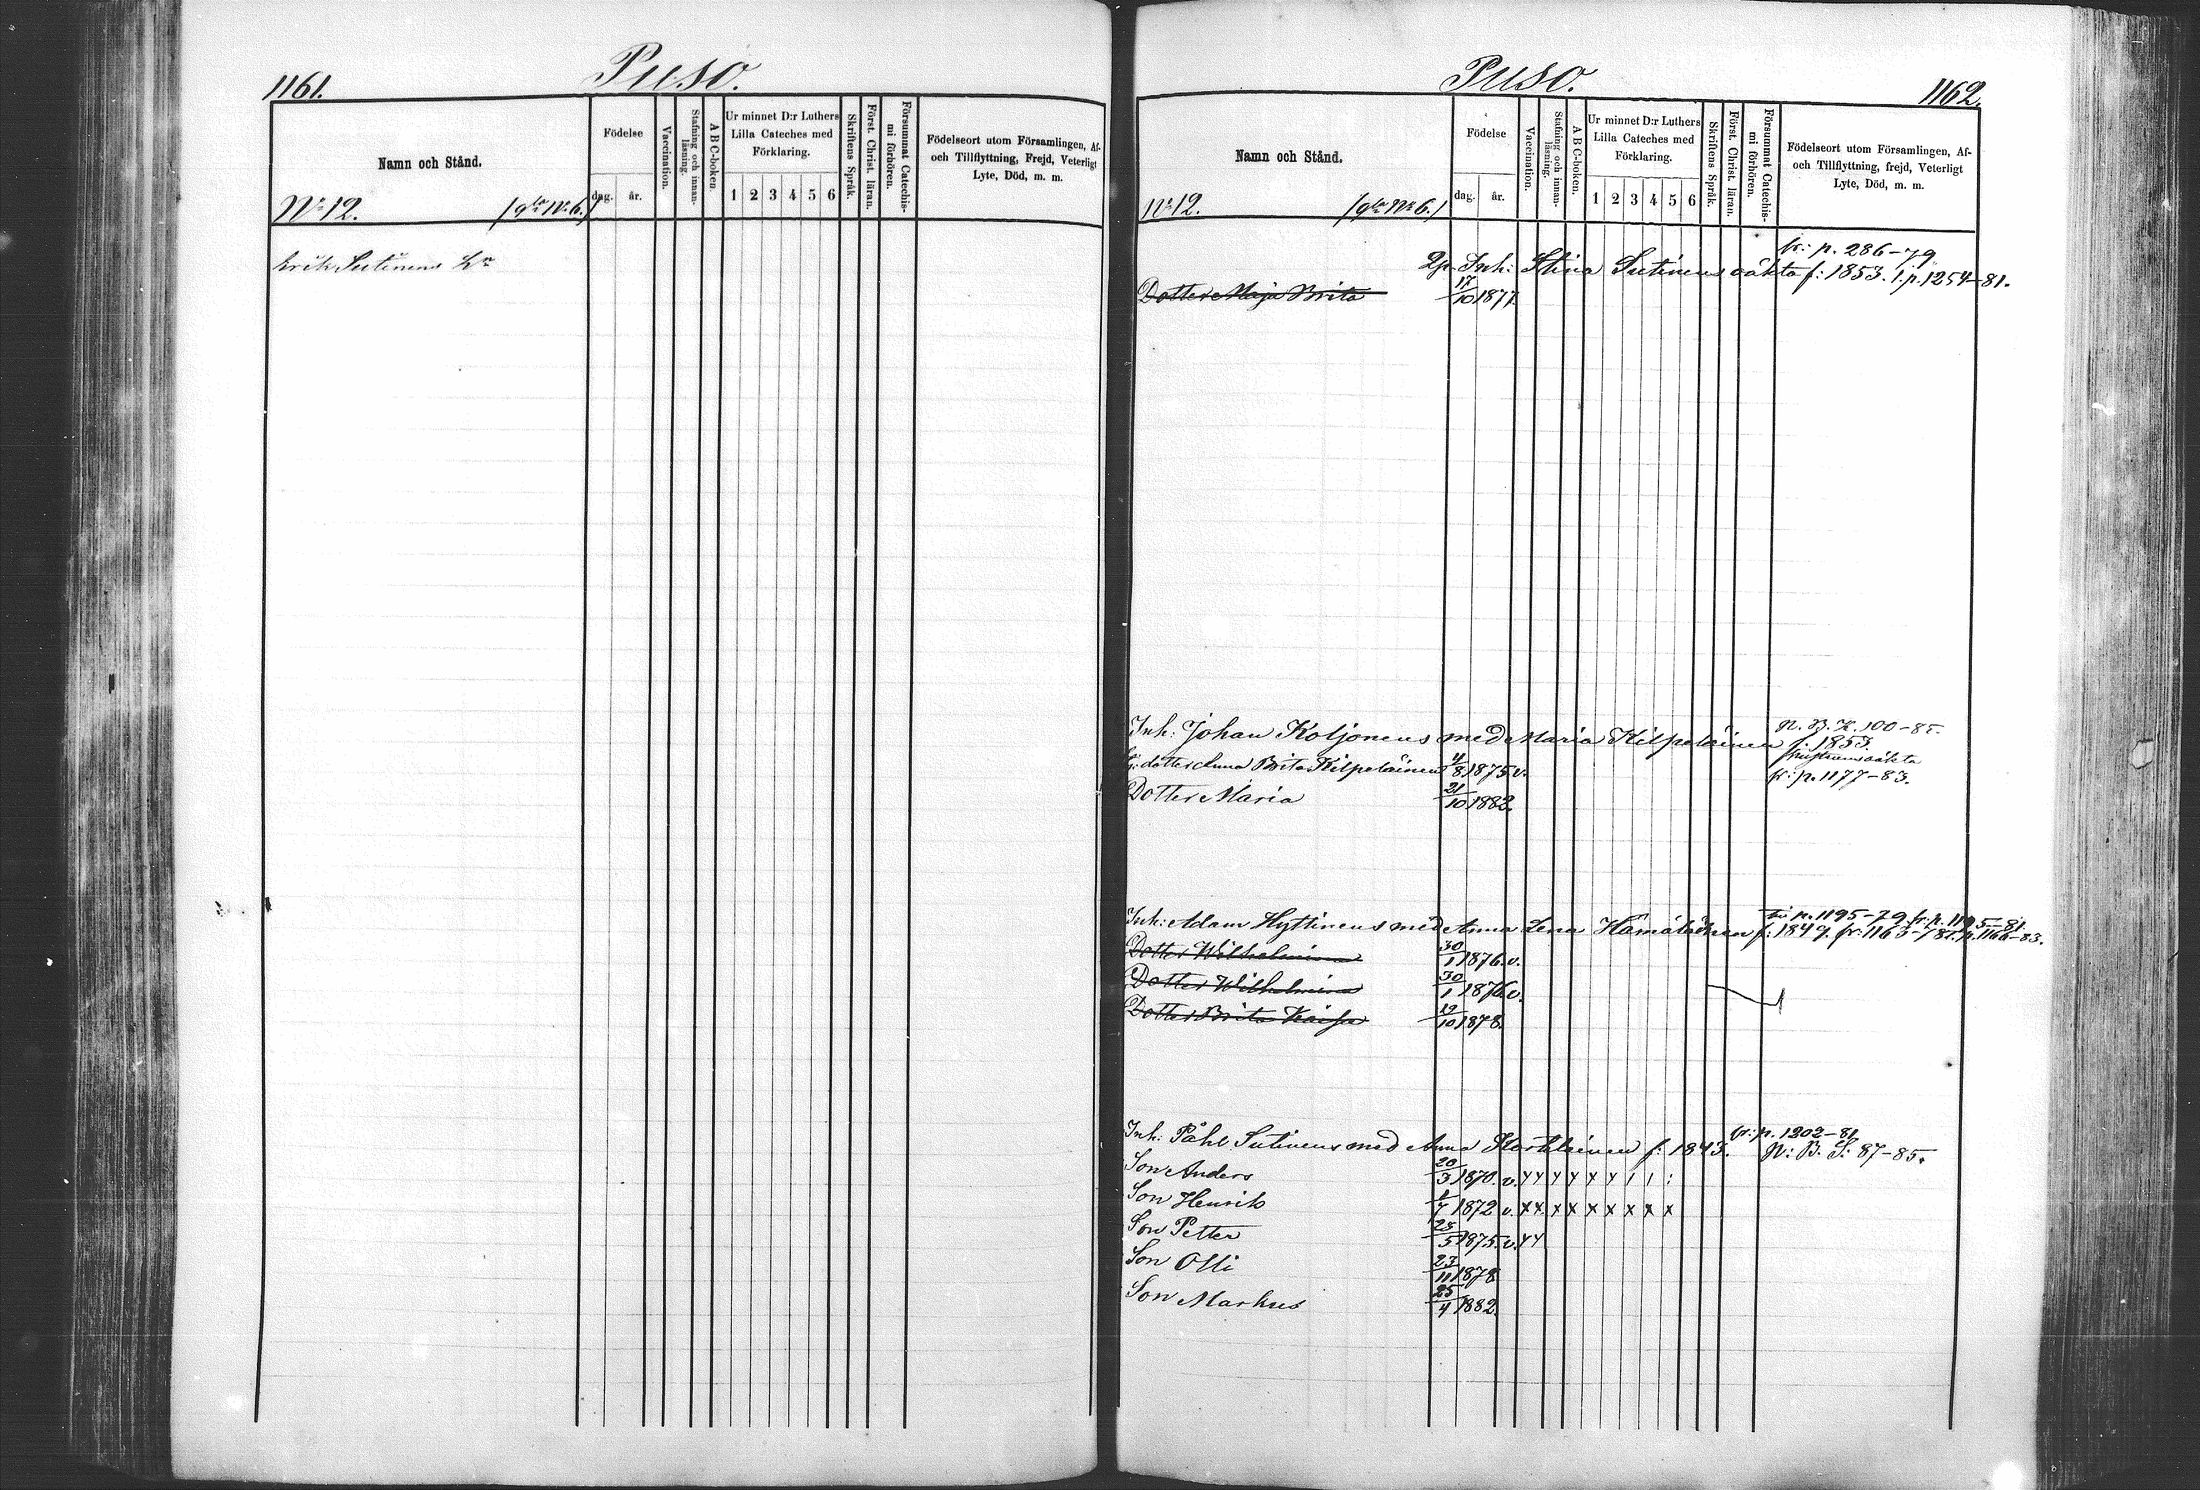 1161.
Puso.
Namn och Stånd.
Födelse
dag. år.
Vaccination.
Stafning och innan-
läsning.
A B C-boken
Ur minnet D:r Luthers
Lilla Cateches med
Förklaring.
1 2 3 4 5 6
Skriftens Språk.
Först. Christ. läran.
Försummat Catechis-
mi förhören.
Födelseort utom Församlingen, Af-
och Tillflyttning, Frejd, Veterligt
Lyte, Död, m. m.
No 12. No 6.
Erik Sutinens
Puso.
1162.
Namn och Stånd.
Födelse
dag. år.
Vaccination.
Stafning och innan-
läsning.
A B C-boken.
Ur minnet D:r Luthers
Lilla Cateches med
Förklaring.
1 2 3 4 5 6
Skriftens Språk.
Först. Christ. läran.
Försummat Catechis-
mi förhören.
Födelseort utom Församlingen, Af-
och Tillflyttning, frejd, Veterligt
Lyte, Död, m. m.
No 12. No 6.
fr: p. 286-79
Inh: Stina Sutinens oäkta f: 1853. t. p. 1254-81.
Dotter Maja Brita 17/10 1877.
Inh: Johan Koljonens med Maria Kilpeläinen f: 1853.
dotter Anna Brita Kilpeläinen 4/8 1875 v.
fr: p. 1177-83.
Dotter Maria 21/10 1882.
p. 1195-79. fr: p. 1195-81.
Inh: Adam Hyttinens med Anna Lena Hämäläinen f: 1847. p. 1166-83.
Dotter Wilhelmina 30/1 1876. v.
Dotter Wilhelmina 30/1 1876 v.
Dotter Brita Kaisa 19/10 1878.
fr: p. 1202-81
Inh: Påhl Sutinens med Anna f: 1843. B. S: 87-85.
Son Anders 20/3 1870. v.
Son Henrik 1872 v. x x x x x x x x x
Son Petter 25/5 1875. v.
Son Olli 23/11 1878
Son Markus 25/4 1882